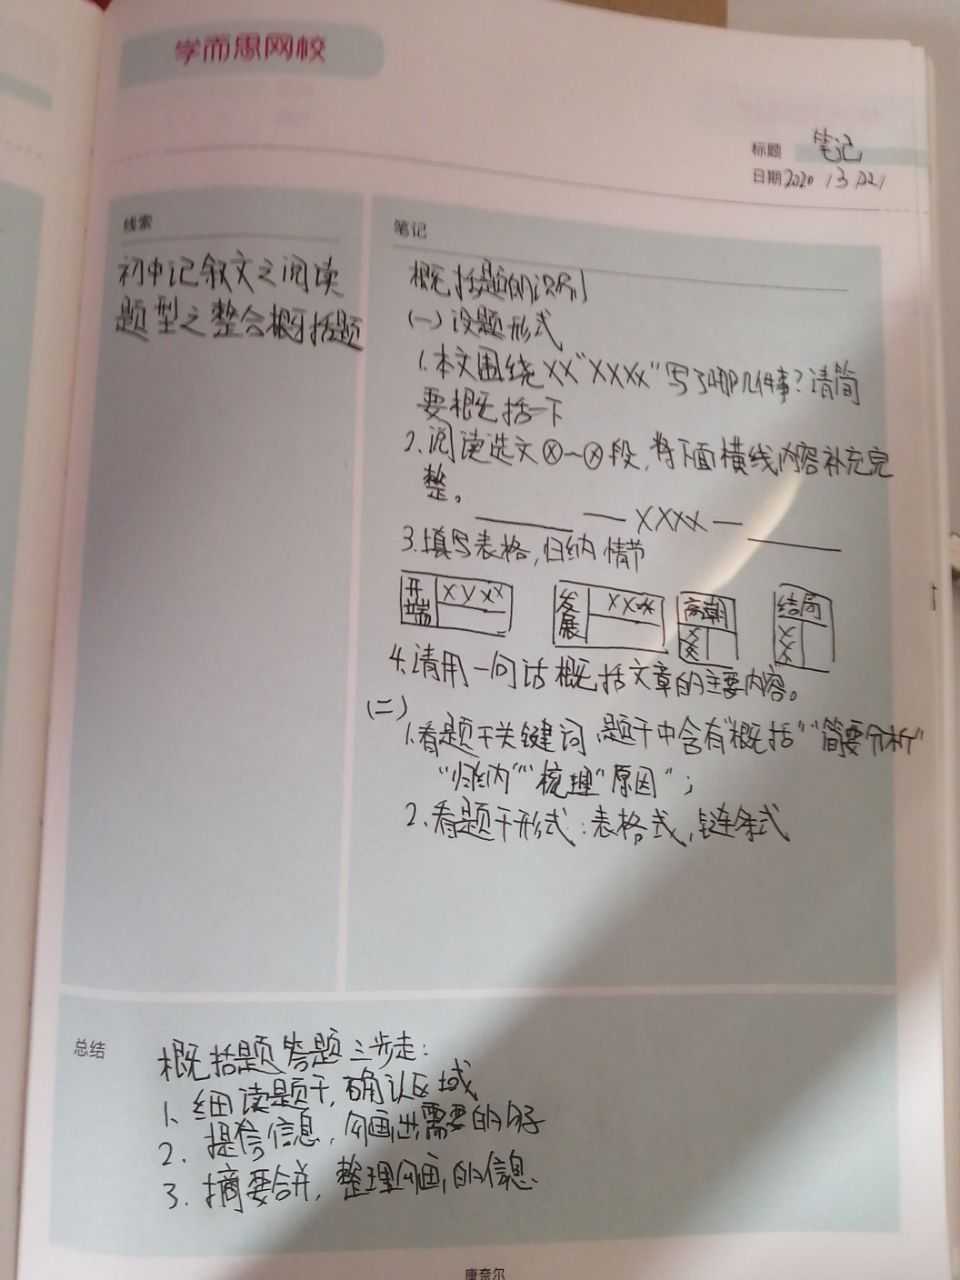 学而思网校
标题 笔记
日期 2020 / 3 /21
线索
初中记叙文之阅读
题型之整合概括题
笔记
概括题的识别
(一)设题形式
1.本文围绕XX“XXXX”写了哪几件事?请简
要概括一下
2.阅读选文ⓧ—ⓧ段,将下面横线内容补充完
整。
______ — XXXX — ______
3.填写表格,归纳情节
开端 XXXX 发展 XXXX 高潮 XXX 结局 XXX
4.请用一句话概括文章的主要内容。
(二)
1.看题干关键词,题干中含有“概括”“简要分析”
“归纳”“梳理”原因”;
2.看题干形式:表格式,链条式
总结
概括题答题三步走:
1. 细读题干,确认区域
2. 提信息,勾画出需要的句子
3. 摘要合并,整理勾画的信息.
康奈尔